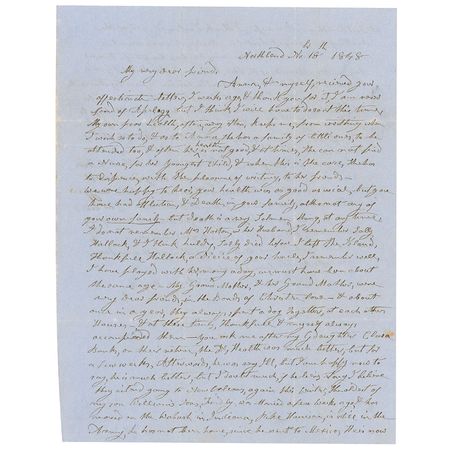 Northland No. 18th 1848
My very dear friend,
Anna, & myself, received your
affectionate letter, weeks ago, & thank you for it, I am never
fond of Apology but I think I will have to do so at this time,
My own poor health, often, very often, keeps me from writing when
I wish to do it, as to Anna, she has a family of little ones, to be
attended too, & often health is not good, & at times, she can not find
a Nurse, for her youngest child, & when this is the case, she has
to dispense, with the pleasure of writing, to her friends—
we were happy to hear, your health was as good as usual, but you
have had affliction, & Death, in your family, although not any of
your own family— but Death is a very Solemn thing, at any time,
I do not remember Mrs Horton, or her Husband, I remember Sally
Hallock, & I think Sally died before I left the Island,
Thankful Hallock, a Niece of yours, I remember well,
I have played with her many a day, we must have been about
the same age— My Grand Mother, & her Grand Mother, were
very dear friends, in the bonds of Christian love— & about
once in a year, they always spent a day together, at each others
Houses— & at these times, Thankful & myself always
accompanied them— you ask me after my G daughter Clara
Banks, on her return, she Health was much better, but for
a few weeks, Afterwards, he was very Ill, but I am happy now to
say, he is much better, but I doubt much, of his being I believe
they intend going to New Orleans, again this fall, the oldest of
my son Benjamin's Sons, was married a few weeks ago, & has
moved on the Wabash in Indiana, Luke Harrison, is still in the
Army, he has not been home, since he went to Mexico, He is now